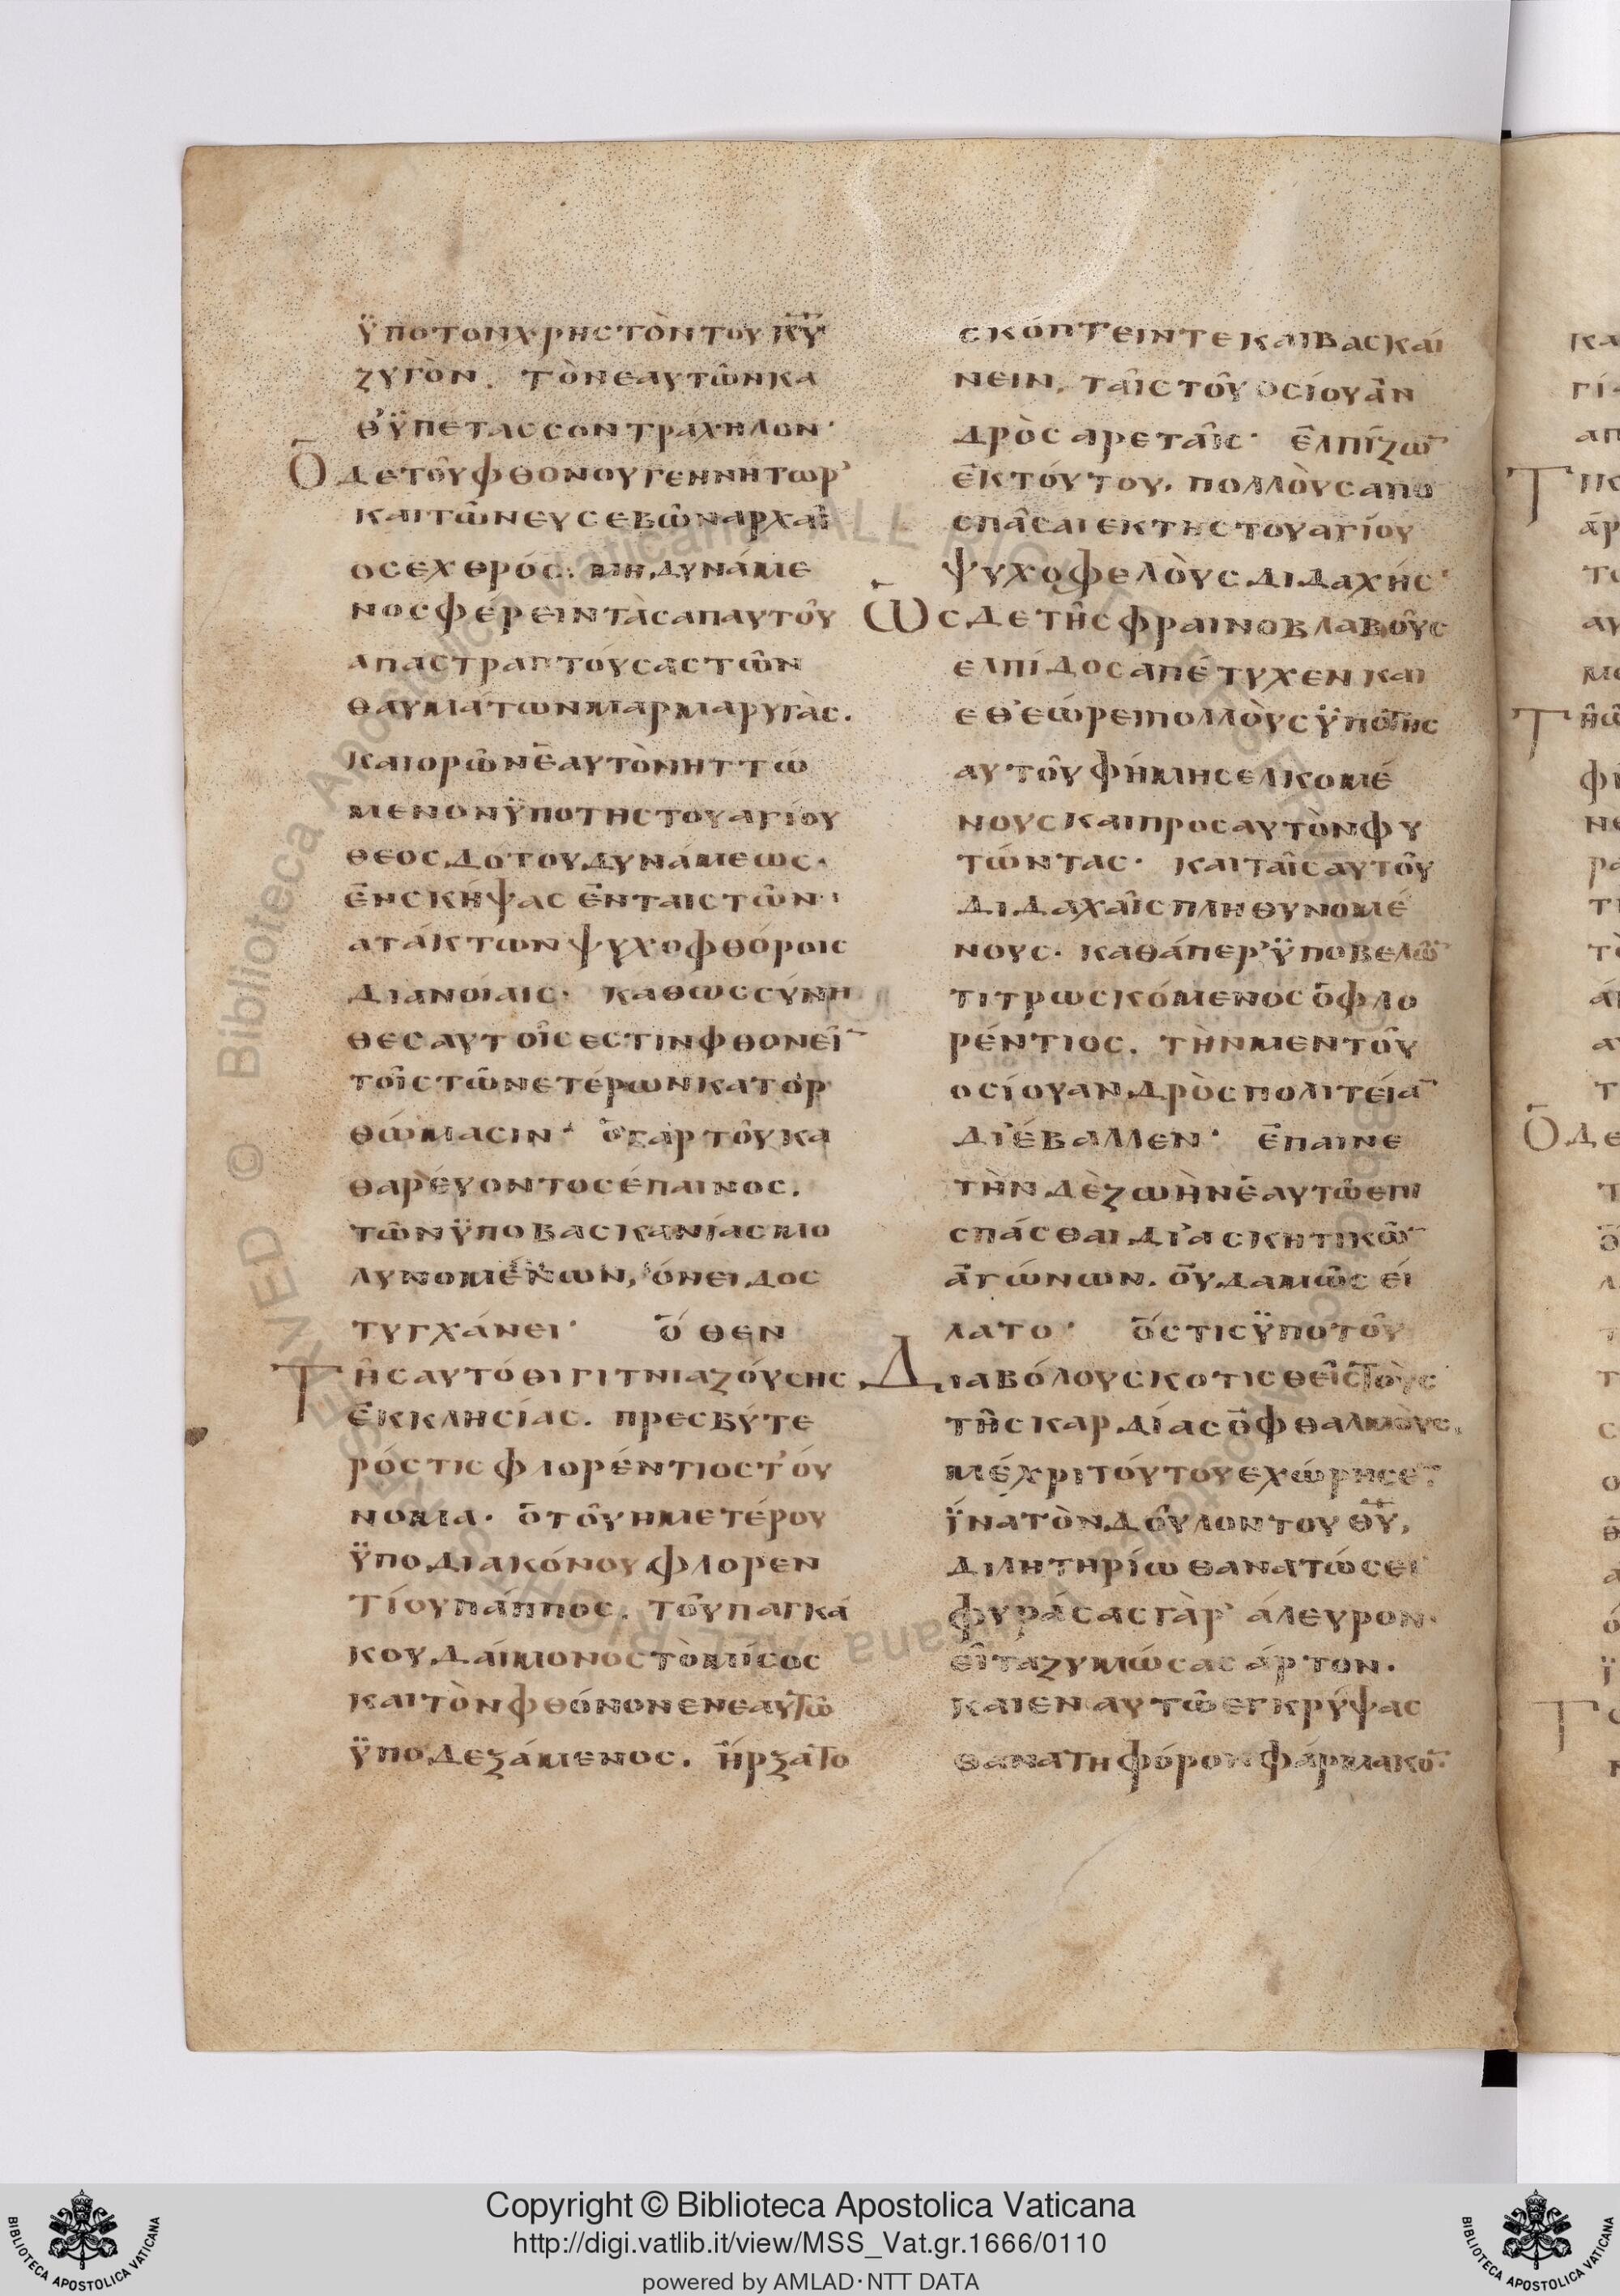 ϋποτονχρηστὸντουκ̅υ̅
ζυγὸν. τὸνεαυτῶνκα
θ’ϋπετασσοντράχηλον·
Ὁδετοῦφθονουγεννήτωρ
καιτῶνευσεβῶναρχαῖ
οσεχθρός· μηδυνάμε
νοσφέρειντὰσαπαυτοῦ
απαστραπτούσαστῶν
θαυμάτωνμαρμαρυγὰς.
καιορῶνἑαυτὸνηττώ
μενονϋποτηστουαγίου
θεοσδότουδυνάμεως·
ἐνσκήψασἐνταιστῶν·
ατάκτωνψυχοφθόροις
διανοίαις· καθωσσύνη
θεσαυτοῖσεστινφθονεῖ̅
τοῖστῶνετέρωνκατορ
θώμασιν· ὁγαρτοῦκα
θαρέυοντοσέπαινος.
τῶνϋποβασκανίασμο
λυνομένων, όνειδος
τυγχάνει· ὅθεν
Τῆσαυτόθιγιτνιαζούσης
ἐκκλησίας. πρεσβύτε
ρόστισφλορέντιοστ’όυ
νομα· ὁτοῦημετέρου
ϋποδιακόνουφλορεν
τίουπάππος. τοῦπαγκά
κουδαίμονοστὸμίσος
καιτὸνφθόνονενεαυτῶ
ϋποδεξάμενος. ἤρξατο
σκόπτειντεκαιβασκαί
νειν, ταῖστοῦοσίουἀν
δρὸσαρεταῖς· ἐλπίζω̅
ἐκτόυτου, πολλὸυσαπο
σπᾶσαιεκτηστουαγίου
ψυχοφελὸυσδιδαχής·
Ὡσδετῆσφραινοβλαβοῦς
ελπίδοσαπέτυχενκαι
εθ’εώρειπολλὸυσϋποτης
αυτοῦφήμησελκομέ
νουσκαιπροσαυτὸνφυ
τώντας· καιταῖσαυτοῦ
διδαχαῖσπληθυνομέ
νους· καθάπερϋποβελῶ̅
τιτρωσκόμενοσὁφλο
ρέντιος. τὴνμεντοῦ
οσίουανδρὸσπολιτεία̅
διέβαλλεν· ἐπαινε
τὴνδὲζωὴνἑαυτῶεπι
σπάσθαιδι’ασκητικῶ̅
ἀγώνων. οὐδαμῶσεί
λατο· ὅστισϋποτοῦ
Διαβόλουσκοτισθεὶστοὺς
τῆσκαρδίασὀφθαλμὸυς.
μέχριτούτουεχώρησε̅
ΐνατὸνδοῦλοντουθ̅υ̅,
διλητηρίωθανατώσει
φυράσασγὰρ’άλευρον·
εῖταζυμώσασάρτον.
καιεναυτῶεγκρύψας
θανατηφόρονφάρμακο̅·
Copyright © Biblioteca Apostolica Vaticana
http://digi.vatlib.it/view/MSS_Vat.gr.1666/0110
powered by AMLAD·NTT DATA